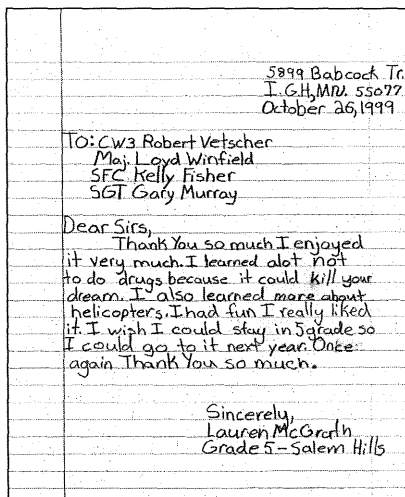 5899 Babcock Tr.
I.G.H, MN. 55077
October 26, 1999
TO: CW3 Robert Vetscher
Maj. Loyd Winfield
SFC Kelly Fisher
SGT Gary Murray
Dear Sirs,
Thank You so much I enjoyed
it very much. I learned alot not
to do drugs because it could kill your
dream. I also learned more about
helicopters. I had fun I really liked
it. I wish I could stay in 5 grade so
I could go to it next year. Once
again Thank You so much.
Sincerely,
Lauren McGrath
Grade 5 - Salem Hills